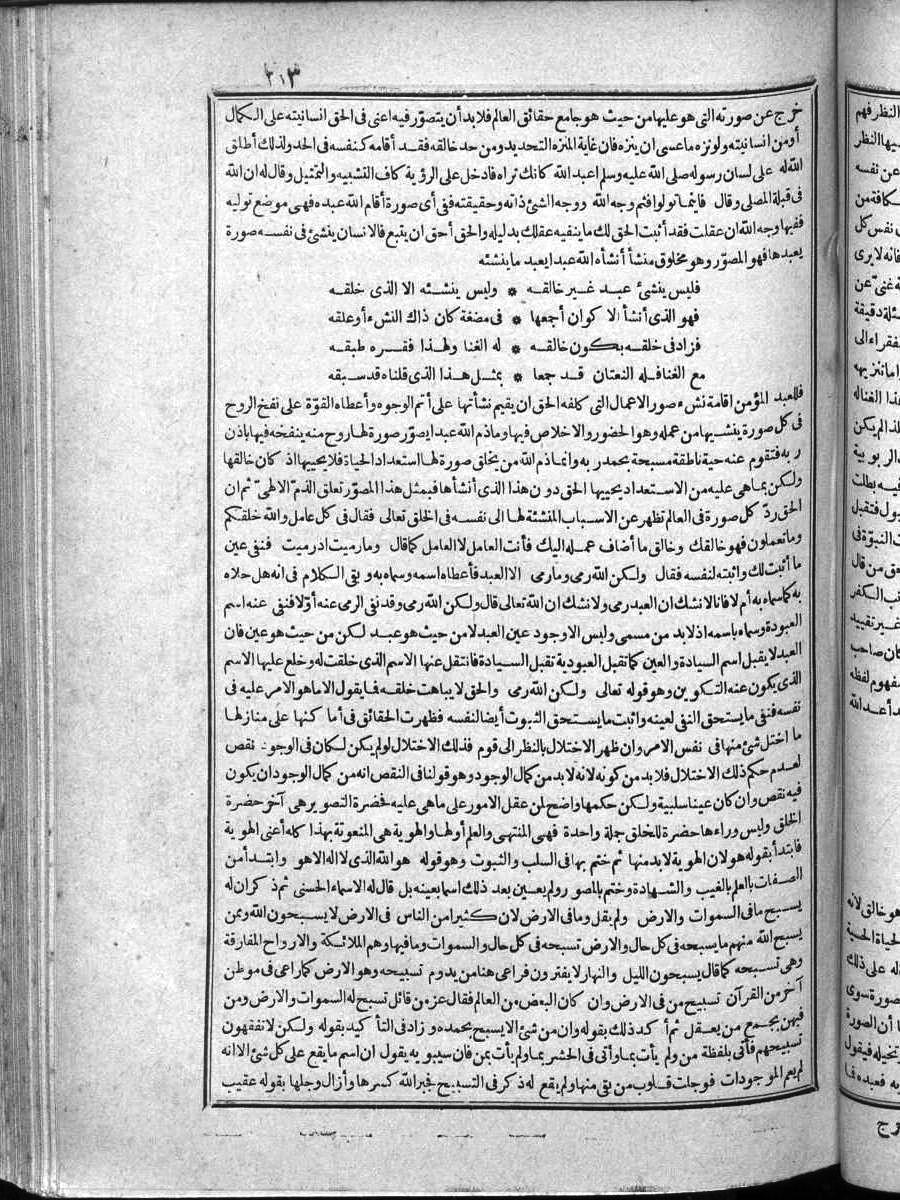 ٢١٣
خرج عن صورته التى هو عليها من حيث هو جامع حقائق العالم فلا بد أن يتصوّر فيه اعنى فى الحق انسانيته على الكمال
أو من انسانيته ولو نزه ما عسى ان ينزه فان غاية المنزه التحديد ومن حد خالقه فقد أقامه كنفسه فى الحد ولذلك أطلق
الله له على لسان رسوله صلى الله عليه وسلم اعبد الله كانك تراه فادخل على الرؤية كاف التشبيه والتمثيل وقال له ان الله
فى قبلة المصلى وقال فاينما تولوا فثم وجه الله ووجه الشئ ذاته وحقيقته ففى أى صورة أقام الله عبده فهى موضع توليه
ففيها وجه الله ان عقلت فقد أثبت الحق لك ما ينفيه عقلك بدليله والحق أحق ان يتبع فالانسان ينشئ فى نفسه صورة
يعبدها فهو المصوّر وهو مخلوق منشأ أنشأه الله عبدا يعبد ما ينشئه
فليس ينشئ عبد غير خالقه * وليس ينشئه الا الذى خلقه
فهو الذى أنشأ الاكوان أجمعها * فى مضغة كان ذاك النشء أو علقه
فزاد فى خلقه بكون خالقه * له الغنا ولهذا فقره طبقه
مع الغنا فله النعتان قد جمعا * بمثل هذا الذى قلناه قد سبقه
فللعبد المؤمن اقامة نشء صور الاعمال التى كلفه الحق ان يقيم نشأتها على أتم الوجوه وأعطاه القوّة على نفخ الروح
فى كل صورة ينشئها من عمله وهو الحضور والاخلاص فيها وما ذم الله عبدا يصوّر صورة لها روح منه ينفخه فيها باذن
ربه فتقوم عنه حية ناطقة مسبحة بحمد ربه وانما ذم الله من يخلق صورة لها استعداد الحياة فلا يحييها اذ كان خالقها
ولكن بما هى عليه من الاستعداد يحييها الحق دون هذا الذى أنشأها فبمثل هذا المصوّر تعلق الذمّ الالهىّ ثم ان
الحق ردّ كل صورة فى العالم تظهر عن الاسباب المنشئة لها الى نفسه فى الخلق تعالى فقال فى كل عامل والله خلقكم
وما تعملون فهو خالقك وخالق ما أضاف عمله اليك فأنت العامل لا العامل كما قال وما رميت اذ رميت فنفى عين
ما أثبت لك واثبته لنفسه فقال ولكن الله رمى وما رمى الا العبد فأعطاه اسمه وسماه به وبقى الكلام فى انه هل حلاه
به كما سماه به أم لا فانا لا نشك ان العبد رمى ولا نشك ان الله تعالى قال ولكن الله رمى وقد نفى الرمى عنه أوّلا فنفى عنه اسم
العبودة وسماه باسمه اذ لا بد من مسمى وليس الا وجود عين العبد لا من حيث هو عبد لكن من حيث هو عين فان
العبد لا يقبل اسم السيادة والعين كما تقبل العبودية تقبل السيادة فانتقل عنها الاسم الذى خلقت له وخلع عليها الاسم
الذى يكون عنه التكوين وهو قوله تعالى ولكن الله رمى والحق لا يباهت خلقه فما يقول الا ما هو الامر عليه فى
نفسه فنفى ما يستحق النفى لعينه واثبت ما يستحق الثبوت أيضا لنفسه فظهرت الحقائق فى أماكنها على منازلها
ما اختل شئ منها فى نفس الامر وان ظهر الاختلال بالنظر الى قوم فذلك الاختلال لو لم يكن لكان فى الوجود نقص
لعدم حكم ذلك الاختلال فلا بد من كونه لانه لا بد من كمال الوجود وهو قولنا فى النقص انه من كمال الوجود ان يكون
فيه نقص وان كان عينا سلبية ولكن حكمها واضح لمن عقل الامور على ما هى عليه فحضرة التصوير هى آخر حضرة
الخلق وليس وراءها حضرة للخلق جملة واحدة فهى المنتهى والعلم أولها والهوية هى المنعوتة بهذا كله أعنى الهوية
فابتدأ بقوله هو لان الهوية لا بد منها ثم ختم بها فى السلب والثبوت وهو قوله هو الله الذى لا اله الا هو وابتدأ من
الصفات بالعلم بالغيب والشهادة وختم بالمصور ولم يعين بعد ذلك اسما بعينه بل قال له الاسماء الحسنى ثم ذكر ان له
يسبح ما فى السموات والارض ولم يقل وما فى الارض لان كثيرا من الناس فى الارض لا يسبحون الله وممن
يسبح الله منهم ما يسبحه فى كل حال والارض تسبحه فى كل حال والسموات وما فيها وهم الملائكة والارواح المفارقة
وهى تسبحه كما قال يسبحون الليل والنهار لا يفترون فراعى هنا من يدوم تسبيحه وهو الارض كما راعى فى موطن
آخر من القرآن تسبيح من فى الارض وان كان البعض من العالم فقال عز من قائل تسبح له السموات والارض ومن
فيهن بجمع من يعقل ثم أكد ذلك بقوله وان من شئ الا يسبح بحمده وزاد فى التأكيد بقوله ولكن لا تفقهون
تسبيحهم فأتى بلفظة من ولم يأت بما وأتى فى الحشر بما ولم يأت بمن فان سيبويه يقول ان اسم ما يقع على كل شئ الا انه
لم يعم الموجودات فوجلت قلوب من بقى منها ولم يقع له ذكر فى التسبيح فجبر الله كسرها وأزال وجلها بقوله عقيب